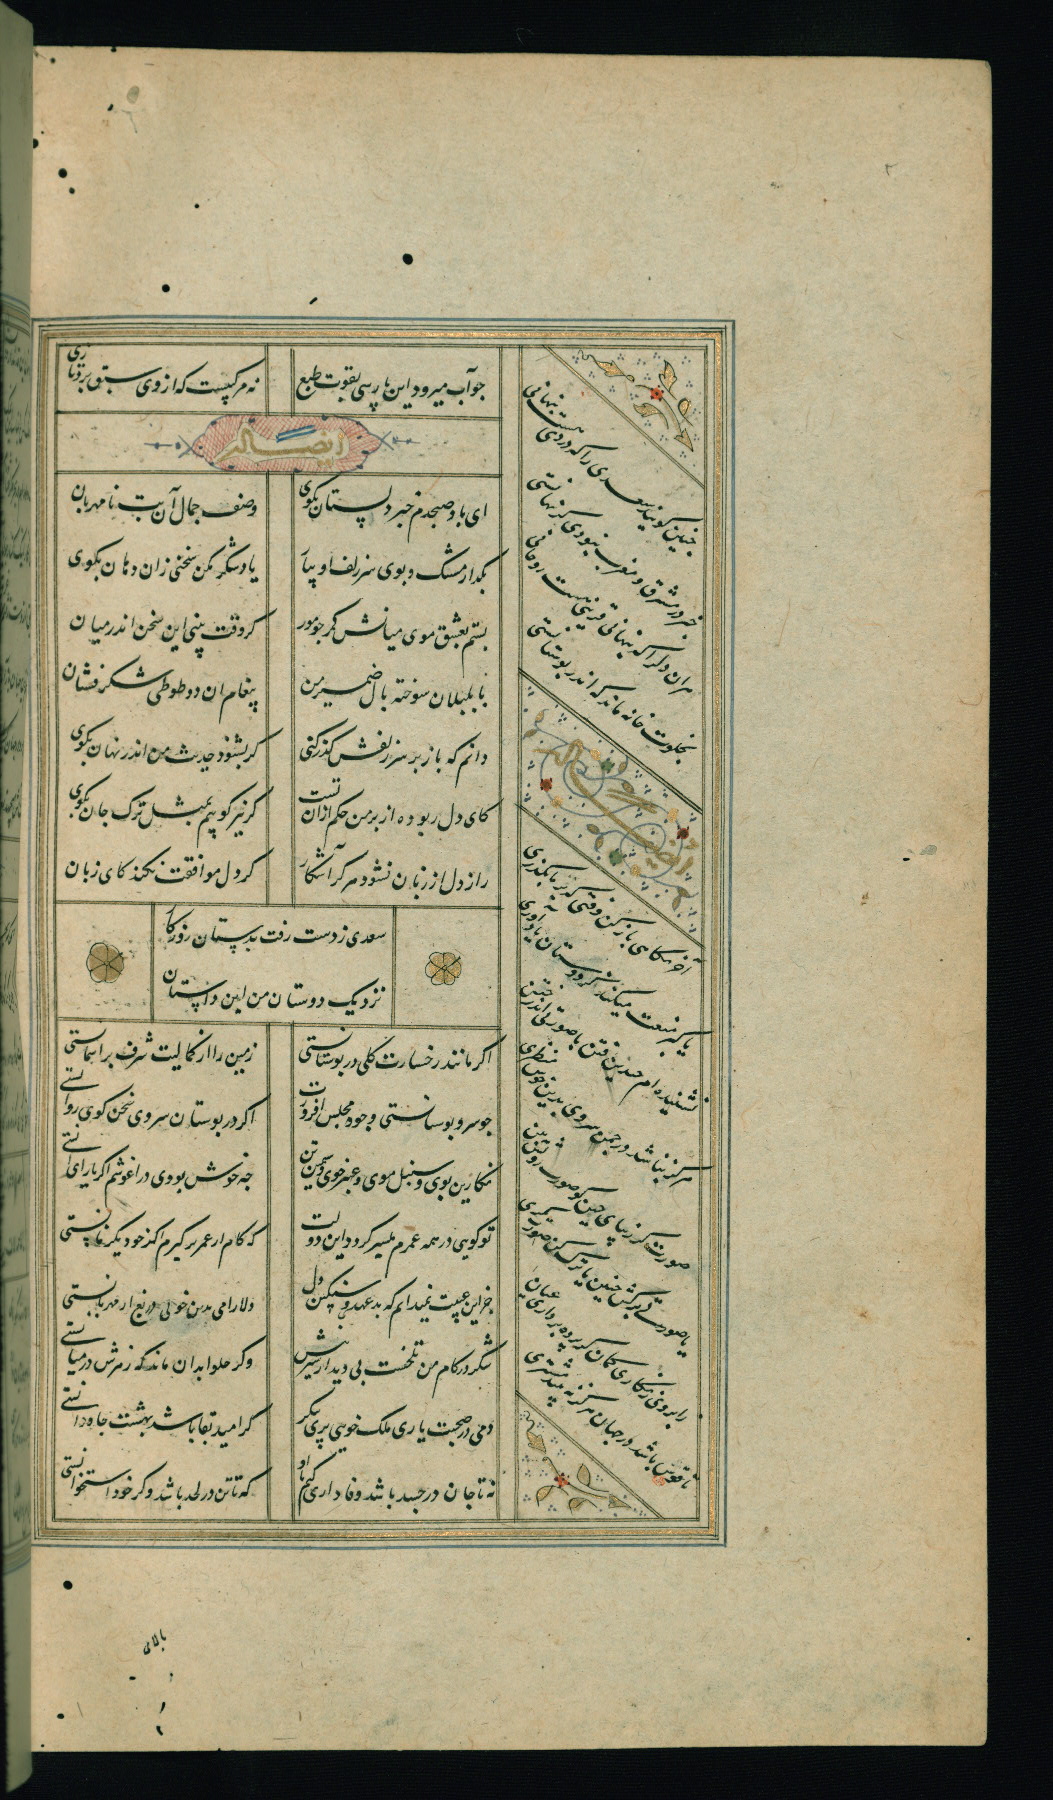 جواب میرود این پارسی بقوت طبع
نه مرکبیست که از وی سبق برد تازی
ایضاله
ای باد صبحدم خبر دلستان بگوی
وصف جمال آن بت نامهربان
بگذار مشک و بوی سر زلف او بیار
یاد شکر مکن سخنی زان دهان بگوی
بستم بعشق موی میانش کمر چو مور
گر وقت بینی این سخن اندر میان
با بلبلان سوخته بال ضمیر من
پیغام ان دو طوطی شکرفشان
دانم که باز بر سر زلفش گذر کنی
گر بشنود حدیث من اندر نهان بگوی
کای دل ربوده از بر من حکم ازان تست
گر نیز گوییم بمثل ترک جان بگوی
راز دل از زبان نشود هرگز آشکار
گر دل موافقت نکند کای زبان
سعدی ز دست رفت بدستان روزگار
نزدیک دوستان من این داستان
اگر مانند رخسارت گلی در بوستانستی
زمین را از کمالیت شرف بر اسمانستی
چو سرو بوستانستی وجود مجلس افروزت
اگر در بوستان سروی سخن گوی روانستی
نگارین بوی و سنبل موی و عنبر خوی و سیمین تن
چه خوش بودی در اغوشم اگر یارای انستی
تو گویی در همه عمرم میسر گردد این دولت
که کام از عمر برگیرم اگر خود یکزمانستی
جز این عیبت نمیدانم که بد عهدی و سنگین دل
دلارامی بدین خوبی دریغ ار مهربانستی
شکر در کام من تلخست بی دیدار شیرینش
وگر حلوا بدان ماند که زهرش در میانستی
دمی در صحبت یاری ملک خوی پری پیکر
گر امید بقا باشد بهشت جاودانستی
نه تا جان در جسد باشد وفاداری کنم با او
که تا تن در لحد باشد وگر خود استخوانستی
چنین گویند سعدی را که دردی هست پنهانی
خبر در مشرق و مغرب نبودی گر نهانستی
هر ان دل را که پنهانی قرینی هست روحانی
بخلوت خانه ماند که اندر بوستانستی
ایضاله
آخر نگاهی باز کن وقتی که بر ما بگذری
یا کبر منعت میکند کز دوستان یاد اوری
نشنیده ام
صورتگر زیبای چین گو صورت رویش ببین
یا صورتی برکش چنین یا ترک کن صورتگری
ز ابروی زنگاری کمان گر پرده برداری عیان
تا قوس باشد در جهان هرگز نبیند مشتری
بالای